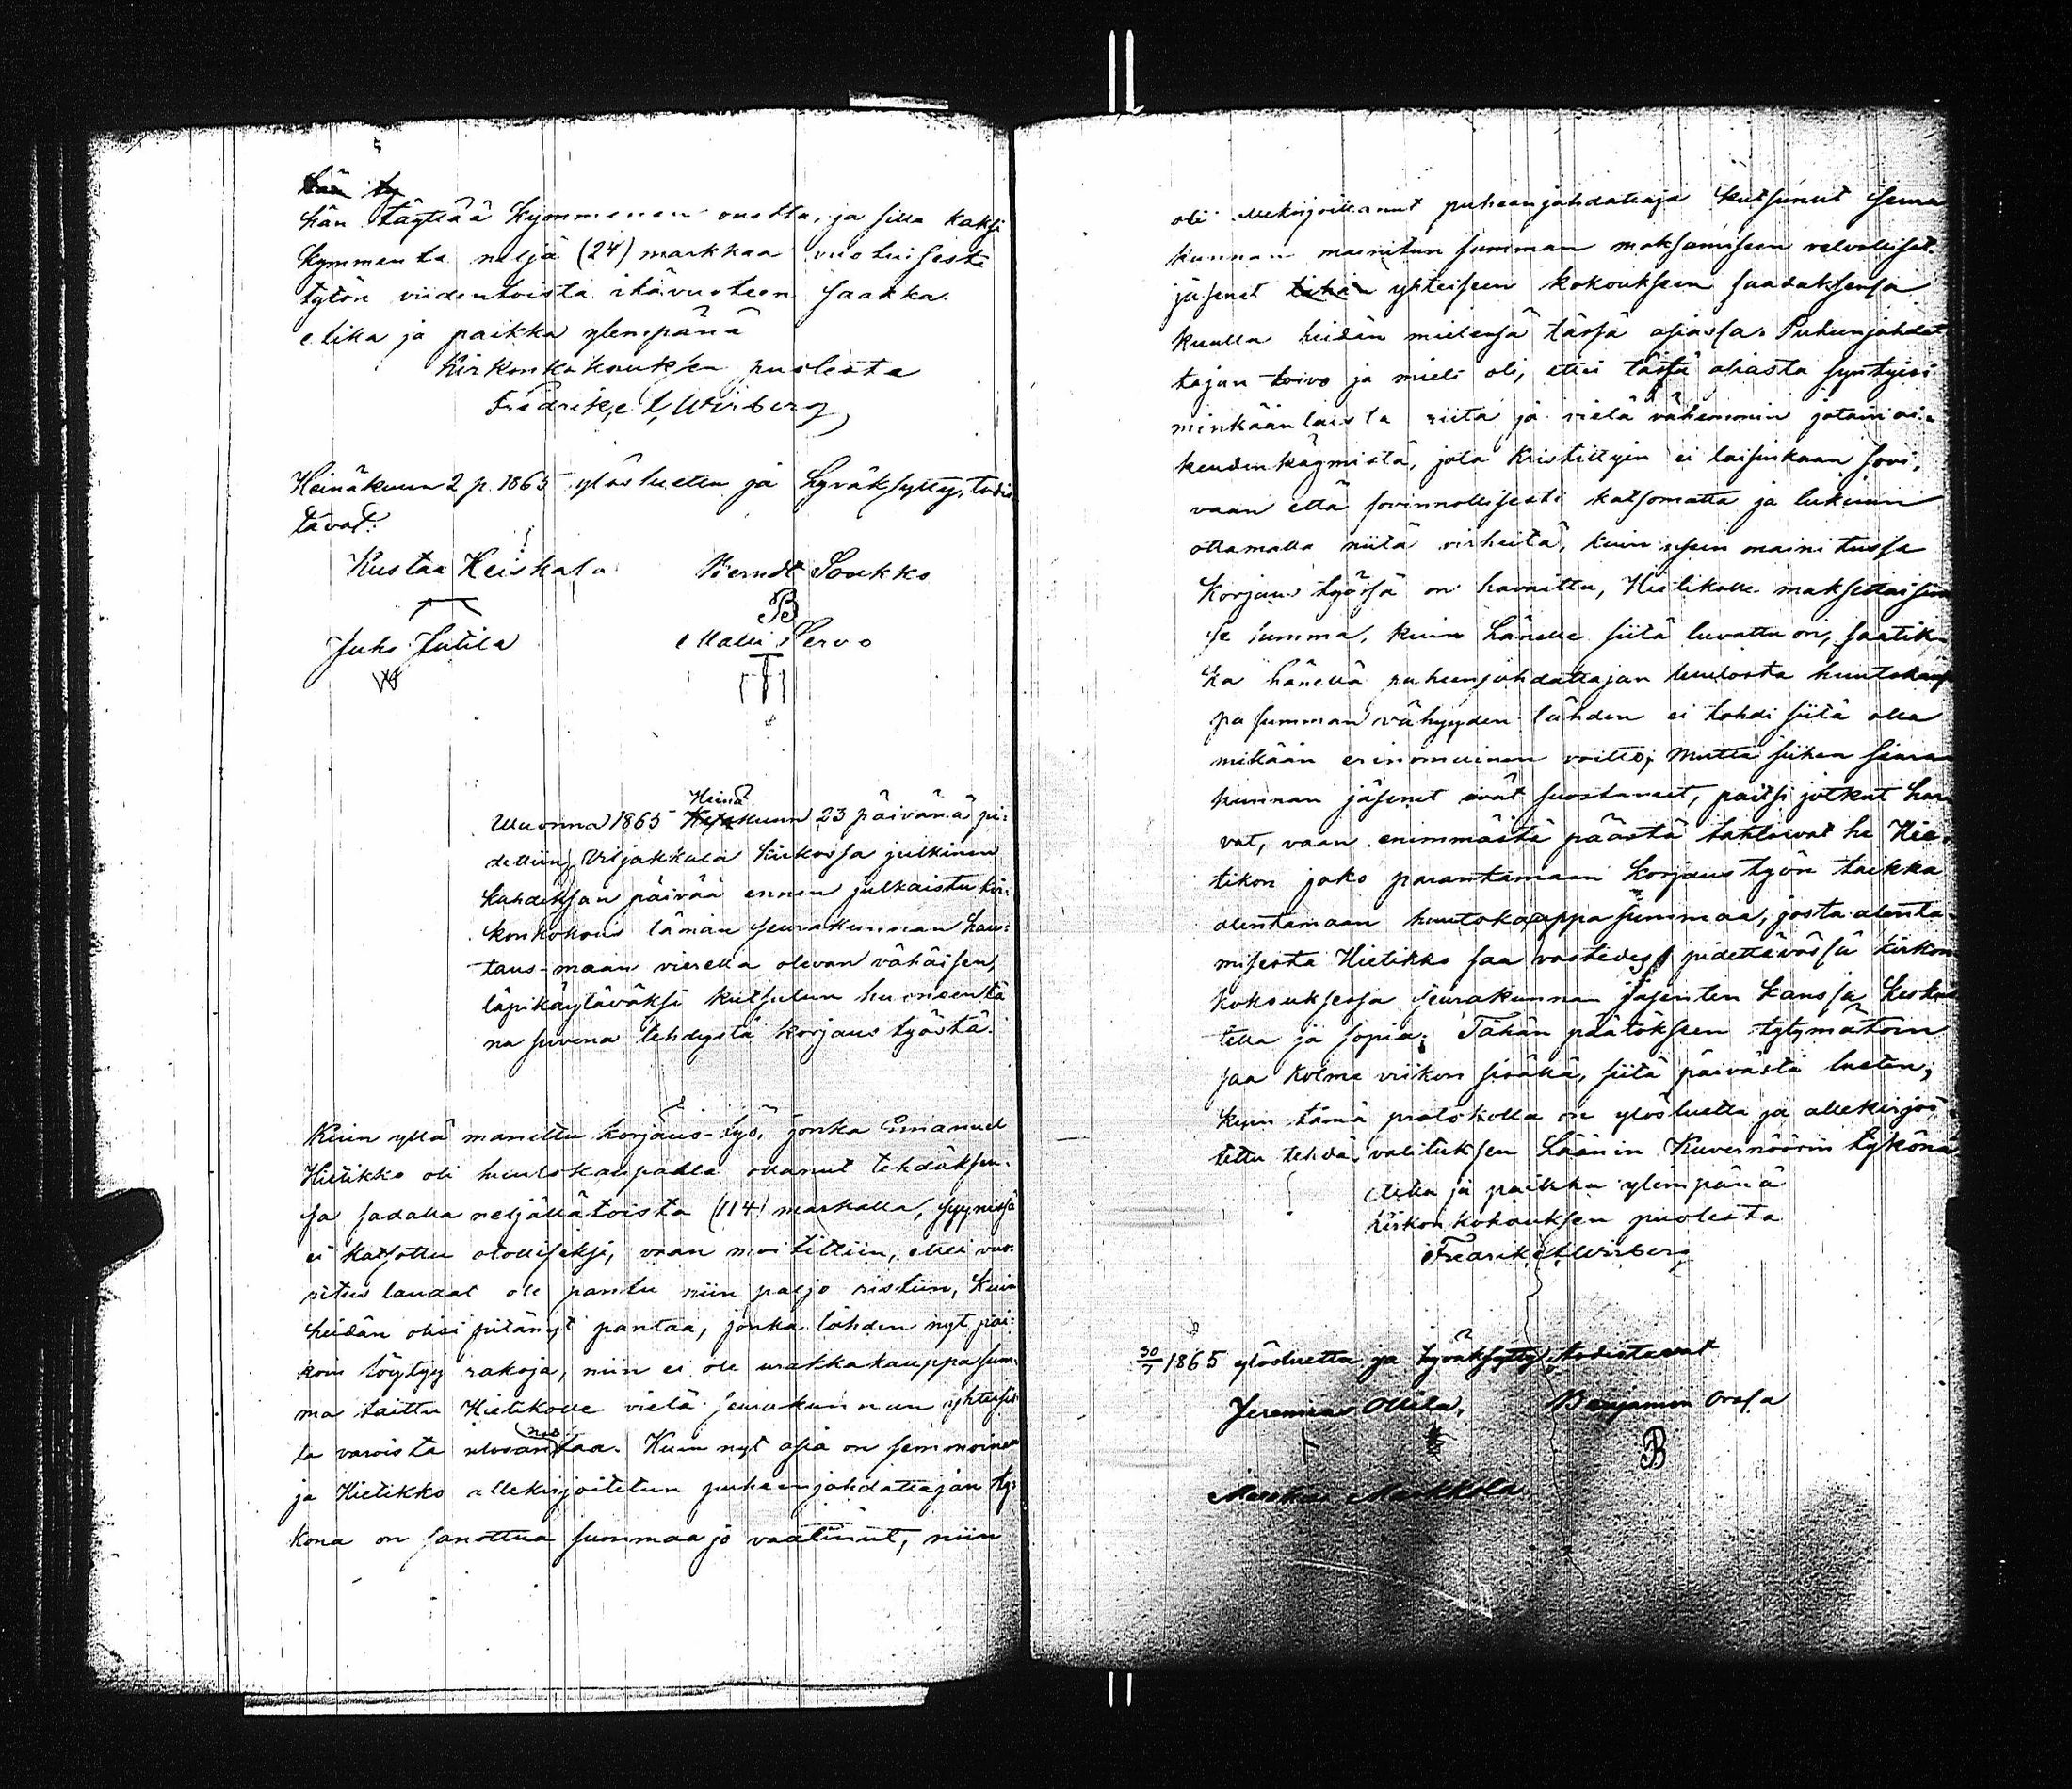 hän täyttää kymmenen vuotta, ja sillä kaksi
kymmentä neljä (24) markkaa vuotuisesti
tytön viidentoista ikävuoteen saakka.
Aika ja paikka ylempänä
Kirkonkokouksen puolesta
Fredrik et Wirberg
Heinäkuun 2 p. 1865 ylösluettu ja hyväksytty, todis-
tavat:
Kustaa Heiskala Berndt Soukko
B
Juho Jutila Matti Pervo
Wuonna 1865 Heinäkuun 23 päivänä pi-
dettiin Viljakkala kirkossa julkinen
kahdeksan päivää ennen julkaistu kir-
konkokous tämän seurakunnan hau-
taus-maan vierellä olevan vähäisen,
läpikäytäväksi kutsutun huoneen tä
nä suvena tehdystä korjaus työstä.
Kuin yllä manittu korjaus-työ, jonka Emanuel
Hietikko oli huutokaupalla ottanut tehdäksen-
sä sadalla neljällätoista (114) markalla, syynissä
ei katsottu otolliseksi, vaan moitittiin, ettei vuo-
ritus laudat ole pantu niin paljo ristiin, kuin
heidän olisi pitänyt pantaa, jonka tähden nyt pai-
koin löytyy rakoja, niin ei ole urakkakauppa sum-
ma taittu Hietikolle vielä seurakunnan yhteisis-
tä varoista ulosantaa. Kuin nyt asia on semmoinen
ja Hietikko allekirjoitetun puheenjohdattajan ty-
könä on sanottua summaa jo vaatinut, niin
oli allekirjoittanut puheenjohdattaja kutsunut seura
kunnan mainitun summan maksamiseen velvolliset
jäsenet tähän yhteiseen kokoukseen saadaksensa
kuulla heidän mielensä tässä asiassa. Puheenjohdat
tajan toivo ja mieli oli, ettei tästä asiasta syntyisi
minkäänlaista riitä ja vielä vähemmin jotain oi-
keudenkäymistä, jota Kristittyin ei laisinkaan sovi,
vaan että sovinnollisesti katsomatta ja lukuun
ottamatta niitä virheitä, kuin usein mainitussa
korjaus työssä on havaittu, Hietikolle maksettaisiin
se summa, kuin hänelle siitä luvattu on, saatik-
ka hänellä puheenjohdattajan luulosta huutokaup
pa summan vähyyden tähden ei tahdi siitä olla
mikään erinomainen voitto; Mutta siihen seura
kunnan jäsenet eivät suostuneet, paitsi jotkut har
vat, vaan enimmästä päästä tahtoivat he Hie-
tikon joko parantamaan korjaus työn taikka
alentamaan huutokauppa summaa, josta alenta-
misesta Hietikko saa vastedes pidettävässä kirkon
kokouksessa seurakunnan jäsenten kanssa keskus
tella ja sopia. Tähän päätökseen tytymätöin
saa kolme viikon sisällä, siitä päivästä lueten,
kuin tämä protokolla on ylösluettu ja allekirjoi-
tettu tehdä valituksen Läänin Kuvernöörin tykönä
Aika ja paikka ylempänä
Kirkonkokouksen puolesta
Fredrik et Wirberg
30/7 1865 ylösluettu ja hyväksytty, todistavat
Jeremias Ollila, Benjamin Orasa
B
Markkola